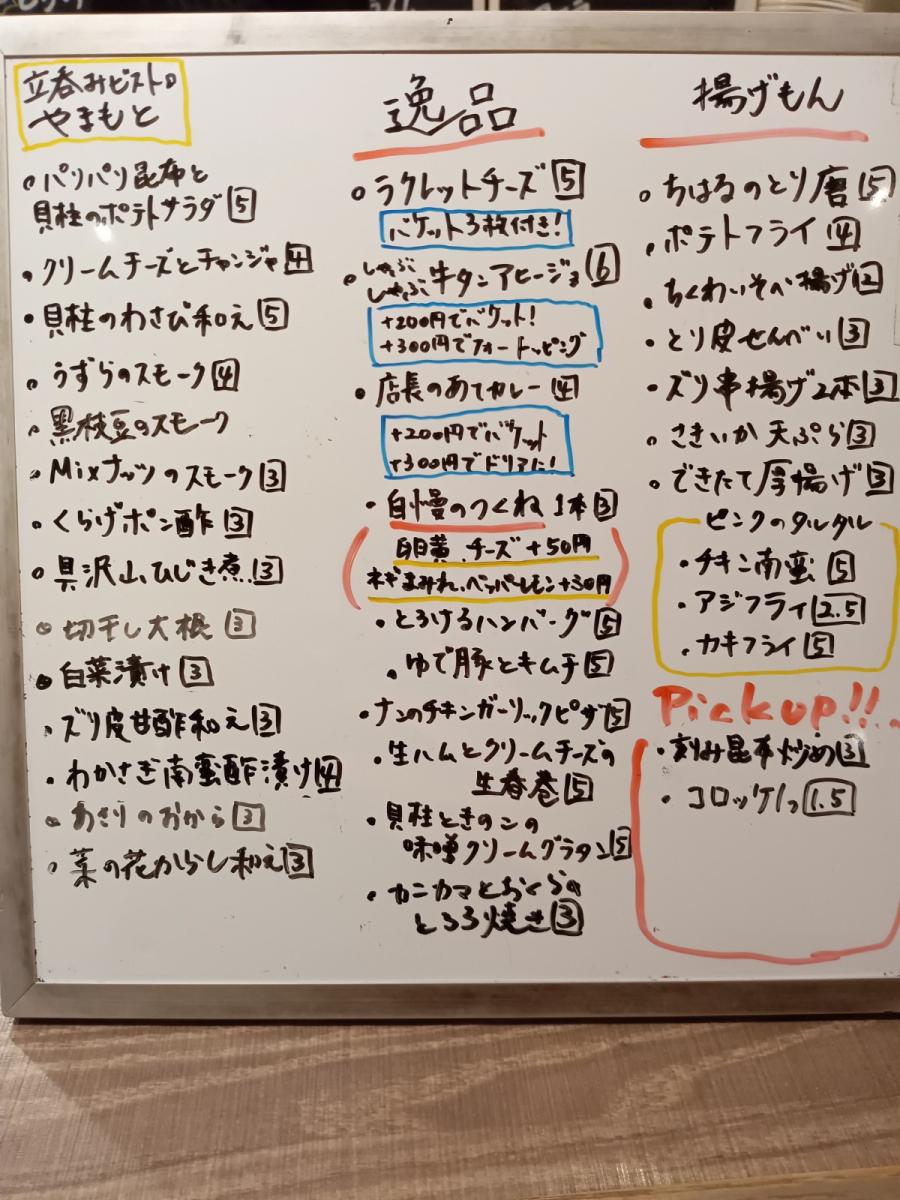 立呑みビストロ
やまもと
・パリパリ昆布と
貝柱のポテトサラダ 5
・クリームチーズとチャンジャ 4
・貝柱のわさび和え 5
・うずらのスモーク 4
・黒枝豆のスモーク
・Mixナッツのスモーク 3
・くらげポン酢 3
・具沢山ひじき煮 3
・切干し大根 3
・白菜漬け 3
・ズリ皮甘酢和え 3
・わかさぎ南蛮酢漬け 4
・あさりのおから 3
・菜の花からし和え 3
逸品
・ラクレットチーズ 5
バケット3枚付き!
・しゃぶしゃぶ牛タンアヒージョ 6
+200円でバケット!
+300円でフォートッピング
・店長のあてカレー 4
+200円でバケット
+300円でドリアに!
・自慢のつくね 1本 3
卵黄、チーズ+50円
ネギまみれ、ペッパーレモン+30円
・とろけるハンバーグ 5
・ゆで豚とキムチ 5
・ナンのチキンガーリックピザ 5
・生ハムとクリームチーズの
生春巻 5
・貝柱ときのこの
味噌クリームグラタン 5
・カニカマとおくらの
とろろ焼き 3
揚げもん
・ちはるのとり唐 5
・ポテトフライ 4
・ちくわいそべ揚げ 2
・とり皮せんべい 3
・ズリ串揚げ2本 3
・さきいか天ぷら 3
・できたて厚揚げ 3
ピンクのタルタル
・チキン南蛮 5
・アジフライ 2.5
・カキフライ 5
Pick up!!
・刻み昆布炒め 3
・コロッケ1コ 1.5